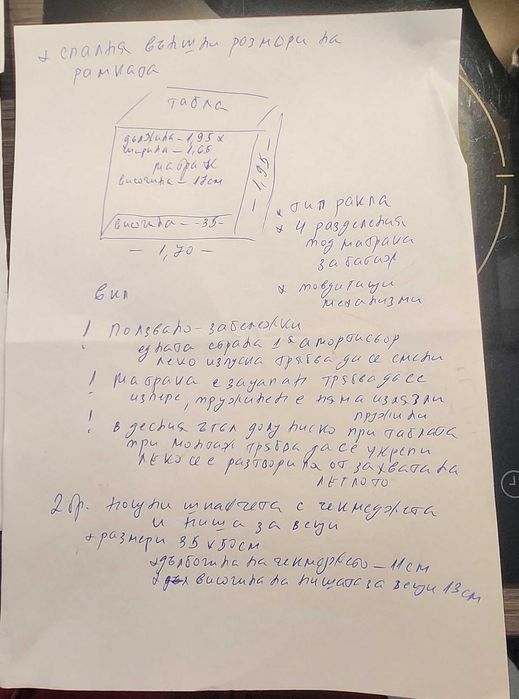 * спалня външни розмери на
рамката
табла
дължина - 1,95 х
ширина - 1,65
матрак
височина - 17см
височина - 35 -
- 1,95 -
- 1,70 -
* тип ракла
* 4 разделения
под матрака
за багаж
* повдигащи
механизми
! ползвано - забележки
едната страна 1 амортисьор
леко изпуска трябва да се смени
! матрака е зацапан трябва да се
изпере, пружинен е няма излязли
пружини
! в десния ъгъл долу ниско при таблата
при монтаж трябва да се укрепи
леко се е разтворила от захвата на
леглото
2 бр. нощни шкафчета с чекмеджета
и ниша за вещи
* размери 35 х 50см
* дълбочина на чекмеджето - 11см
* височина на нишата за вещи 13см